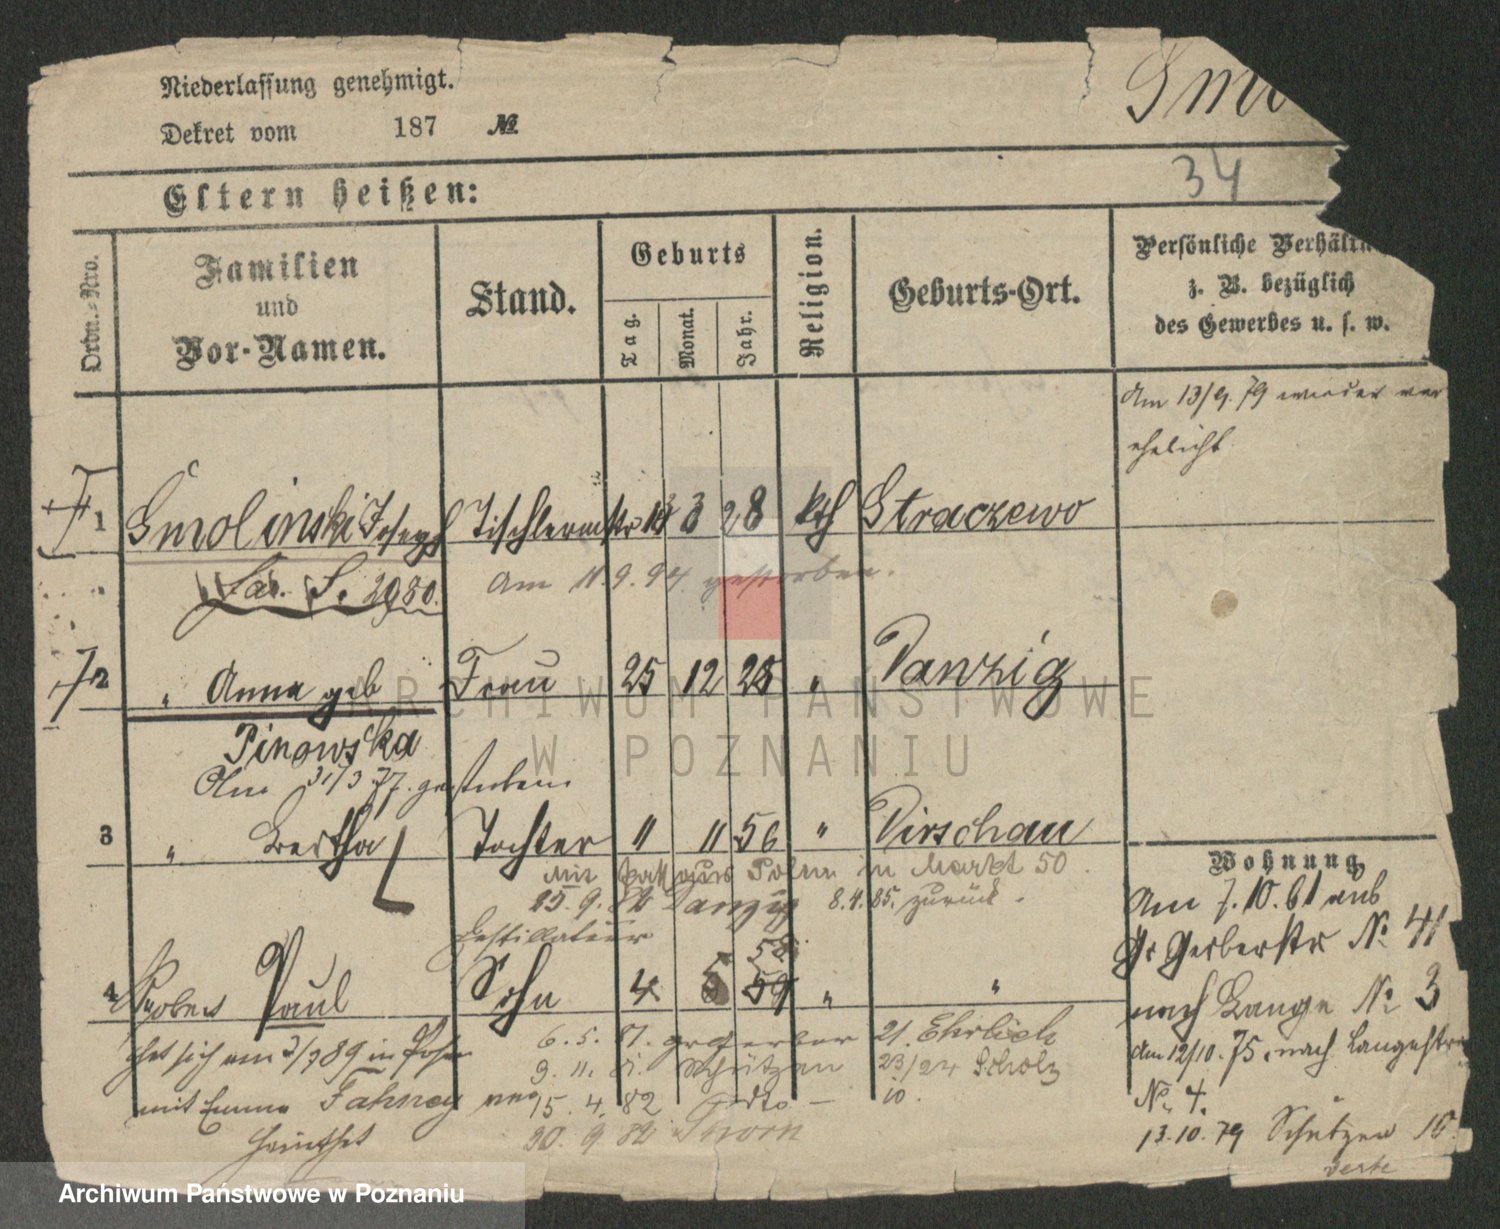 Niederlassung genehmigt.
Dekret vom 187 №
Smo
34
Eltern heißen:
Ordn.-Nro.
Familien
und
Vor-Namen.
Stand.
Geburts
Tag.
Monat.
Jahr.
Religion.
Geburts-Ort.
Persönliche Verhältn
z. B. bezüglich
des Gewerbes u. s. w.
Am 13/9. 79 wieder ver
ehelicht
1 Smolinski Joseph Tischlermstr 3 28 kth Straczewo
S. 2980.
Am 11.9.94 gestorben.
2 " Anna geb Frau 25 12 25 " Danzig
Pinowska
Am 31/3 77. gestorben
3 " Bertha Tochter " 11 56 " Dirschau
mit in Markt 50
25.9.82 Danzig 8.4.85. zurück.
Destillateur
58
4 Robert Paul Sohn 4 5 59 " "
hat sich am 3/7 89 in Posen
mit Emma Fahney ver
heirathet
6.5.81. grgerber 21. Ehrlich
9.11. Schützen 23/24 Scholz
15.4.82 dto — io.
30.9.82 Thorn
Wohnung
Am 7.10.61 aus
Gr Gerberstr № 41
nach Lange № 3
Am 12/10. 75. nach Langestr
No. 4.
13.10.79 Schützen 15
verte
ARCHIWUM PAŃSTWOWE
W POZNANIU
Archiwum Państwowe w Poznaniu